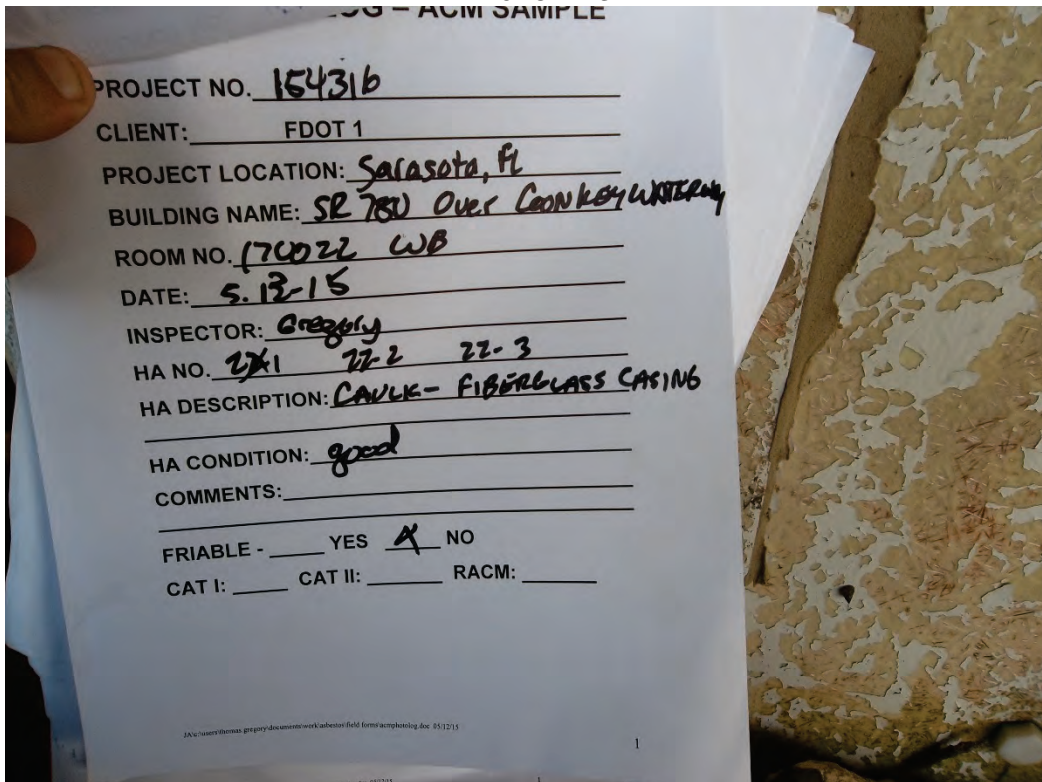 OG – ACM SAMPLE
PROJECT NO. 154316
CLIENT: FDOT 1
PROJECT LOCATION: Sarasota, FL
BUILDING NAME: SR 780 Over Coon Key WATERWAY
ROOM NO. 170022 WB
DATE: 5-13-15
INSPECTOR: Gregory
HA NO. 22-1 22-2 22-3
HA DESCRIPTION: CAULK - FIBERGLASS CASING
HA CONDITION: good
COMMENTS:
FRIABLE - YES X NO
CAT I: CAT II: RACM:
JA\c:\users\thomas.gregory\documents\work\asbestos\field forms\acmphotolog.doc 05/12/15
1
1